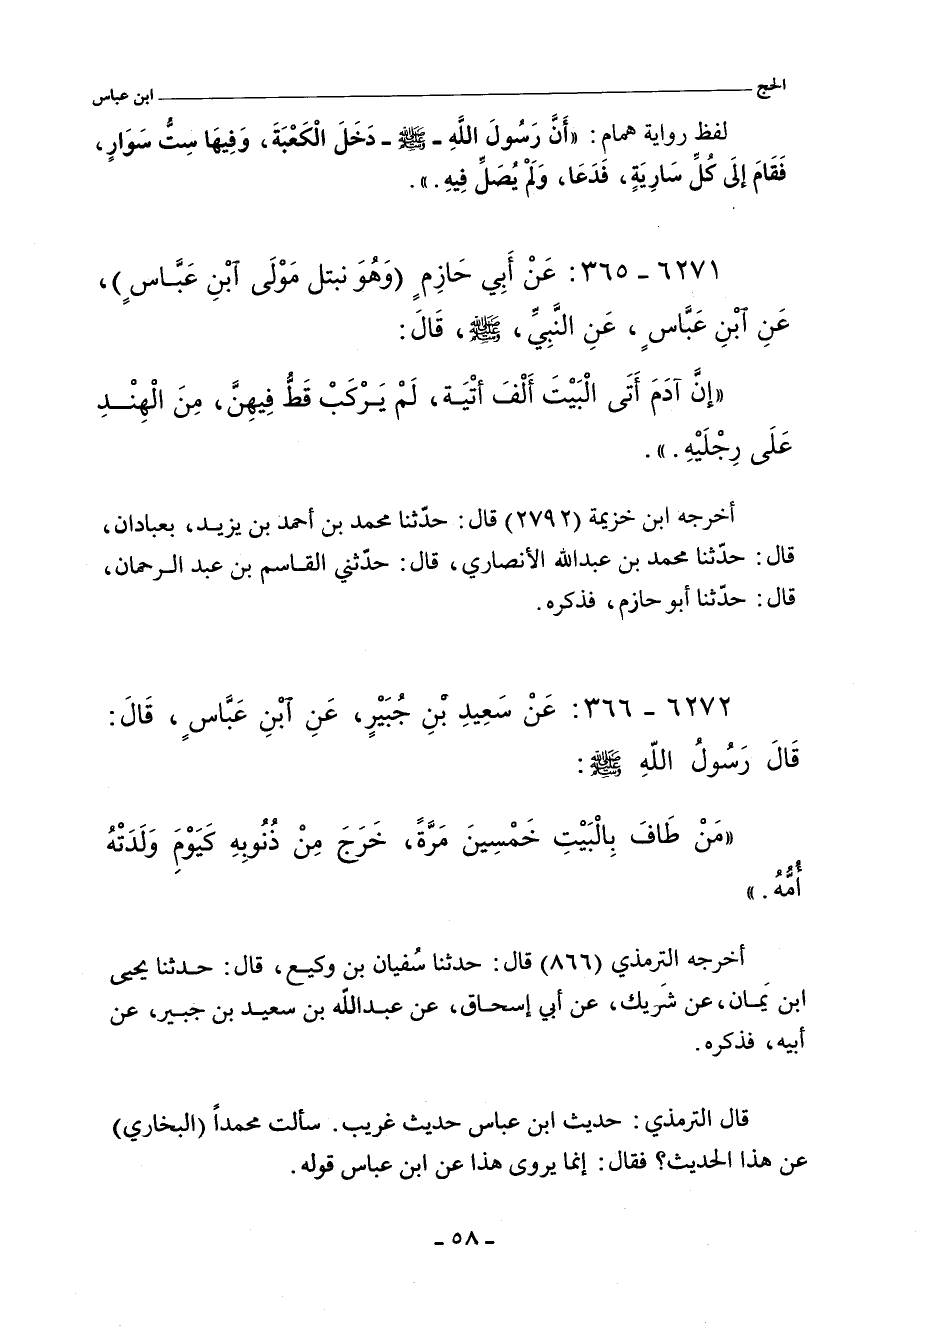 الحج ــــــ ابن عباس
لفظ رواية همام: «أَنَّ رَسُولَ اللَّهِ ـ ﷺ ـ دَخَلَ الْكَعْبَةَ، وَفِيهَا سِتُّ سَوَارٍ،
فَقَامَ إِلَى كُلِّ سَارِيَةٍ، فَدَعَا، وَلَمْ يُصَلِّ فِيهِ.».
٦٢٧١ ـ ٣٦٥: عَنْ أَبِي حَازِمٍ (وَهُوَ نبتل مَوْلَى ٱبْنِ عَبَّاسٍ)،
عَنِ ٱبْنِ عَبَّاسٍ، عَنِ النَّبِيِّ، ﷺ، قَالَ:
«إِنَّ آدَمَ أَتَى الْبَيْتَ أَلْفَ أَتْيَة، لَمْ يَرْكَبْ قَطُّ فِيهِنَّ، مِنَ الْهِنْدِ
عَلَى رِجْلَيْهِ.».
أخرجه ابن خزيمة (٢٧٩٢) قال: حدّثنا محمد بن أحمد بن يزيد، بعبادان،
قال: حدّثنا محمد بن عبدالله الأنصاري، قال: حدّثني القاسم بن عبد الرحمان،
قال: حدّثنا أبو حازم، فذكره.
٦٢٧٢ ـ ٣٦٦: عَنْ سَعِيدِ بْنِ جُبَيْرٍ، عَنِ ٱبْنِ عَبَّاسٍ، قَالَ:
قَالَ رَسُولُ اللّهِ ﷺ:
«مَنْ طَافَ بِالْبَيْتِ خَمْسِينَ مَرَّةً، خَرَجَ مِنْ ذُنُوبِهِ كَيَوْمَ وَلَدَتْهُ
أُمُّهُ.»
أخرجه الترمذي (٨٦٦) قال: حدثنا سُفيان بن وكيع، قال: حدثنا يحيى
ابن يَمان، عن شَريك، عن أبي إسحاق، عن عبداللّه بن سعيد بن جبير، عن
أبيه، فذكره.
قال الترمذي: حديث ابن عباس حديث غريب. سألت محمداً (البخاري)
عن هذا الحديث؟ فقال: إنما يروى هذا عن ابن عباس قوله.
ـ ٥٨ ـ